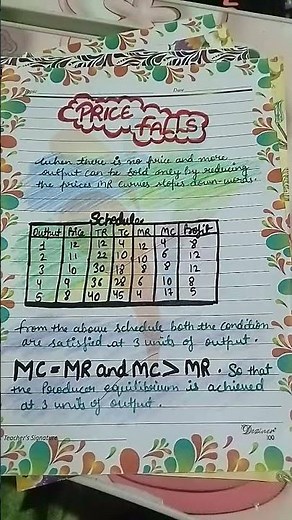 Date
PRICE
FALLS
When there is no price and more
output can be sold only by reducing
the prices MR curves slopes down-words.
Schedule.
Output Price TR TC MR MC Profit
1 12 12 4 12 4 8
2 11 22 10 10 6 12
3 10 30 18 8 8 12
4 9 36 28 6 10 8
5 8 40 45 4 17 5
from the above schedule both the condition
are satisfied at 3 units of output.
MC = MR and MC > MR. So that
the Producer equilibrium is achieved
at 3 units of output.
Teacher's Signature
100